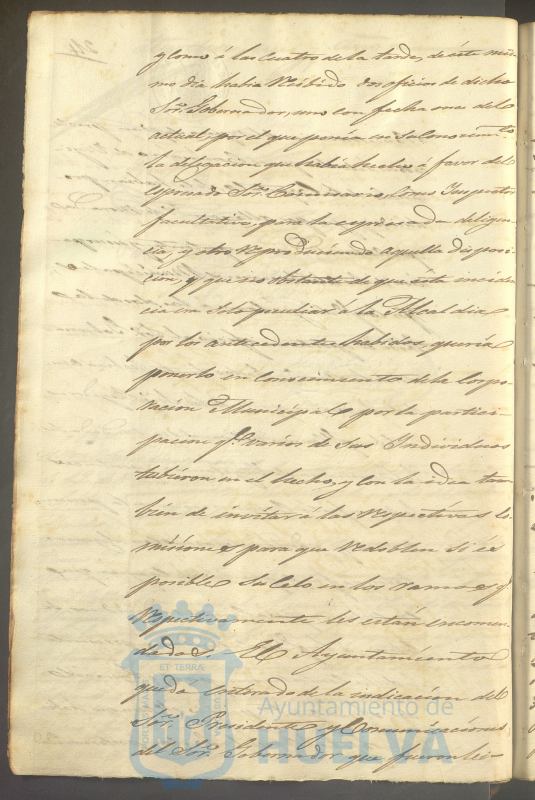 y como á las cuatro de la tarde, de éste mis-
mo dia habia recibido dos oficios de dicho
Sor. Gobernador, uno con fecha once del
actual, por el que ponia en su conocimto.
la delegacion que habia hecho á favor del
espresado Sor. Comisario, como Inspector
facultativo, para la espresada diligen-
cia, y otro reproduciendo aquella disposi-
cion, y que no obstante de que ésta inciden-
cia era solo peculiar á la Alcaldia
por los antecedentes habidos, queria
ponerlo en conocimiento de la Corpo-
racion Municipal por la partici-
pacion qe. varios de sus Individuos
tubieron en el hecho, y con la idea tam-
bien de invitar á las respectivas Co-
misiones para que redoblen si és
posible su celo en los ramos qe.
respectivamente les están encomen-
dados. El Ayuntamiento
queda enterado de la indicacion del
Sor. Presidente y comunicaciones
del Sor. Gobernador que fueron lei-
ET TERRAE
Ayuntamiento de
HUELVA